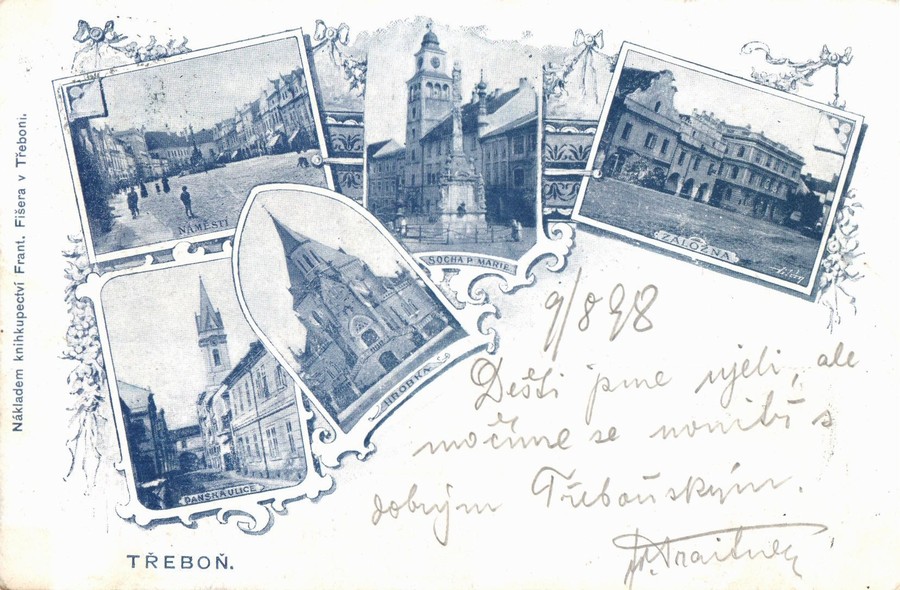 Nákladem knihkupectví Frant. Fišera v Třeboni.
NÁMĚSTÍ
SOCHA P. MARIE
ZÁLOŽNA
HROBKA
PANSKÁ ULICE
9/8 98
Dešti jsme ujeli, ale
močíme se s
dobrým Třeboňským.
TŘEBOŇ.